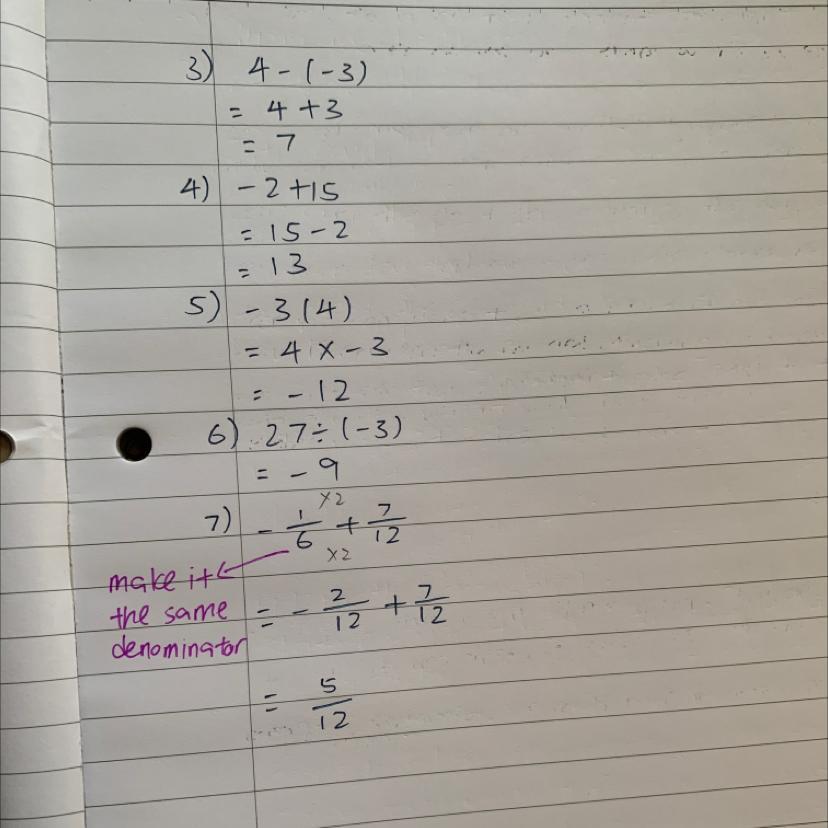 3) 4 - (-3)
= 4 + 3
= 7
4) - 2 + 15
= 15 - 2
= 13
5) - 3(4)
= 4 × - 3
= - 12
6) 27 ÷ (-3)
= - 9
×2
7) - 1/6 + 7/12
×2
make it
the same
denominator
= - 2/12 + 7/12
= 5/12